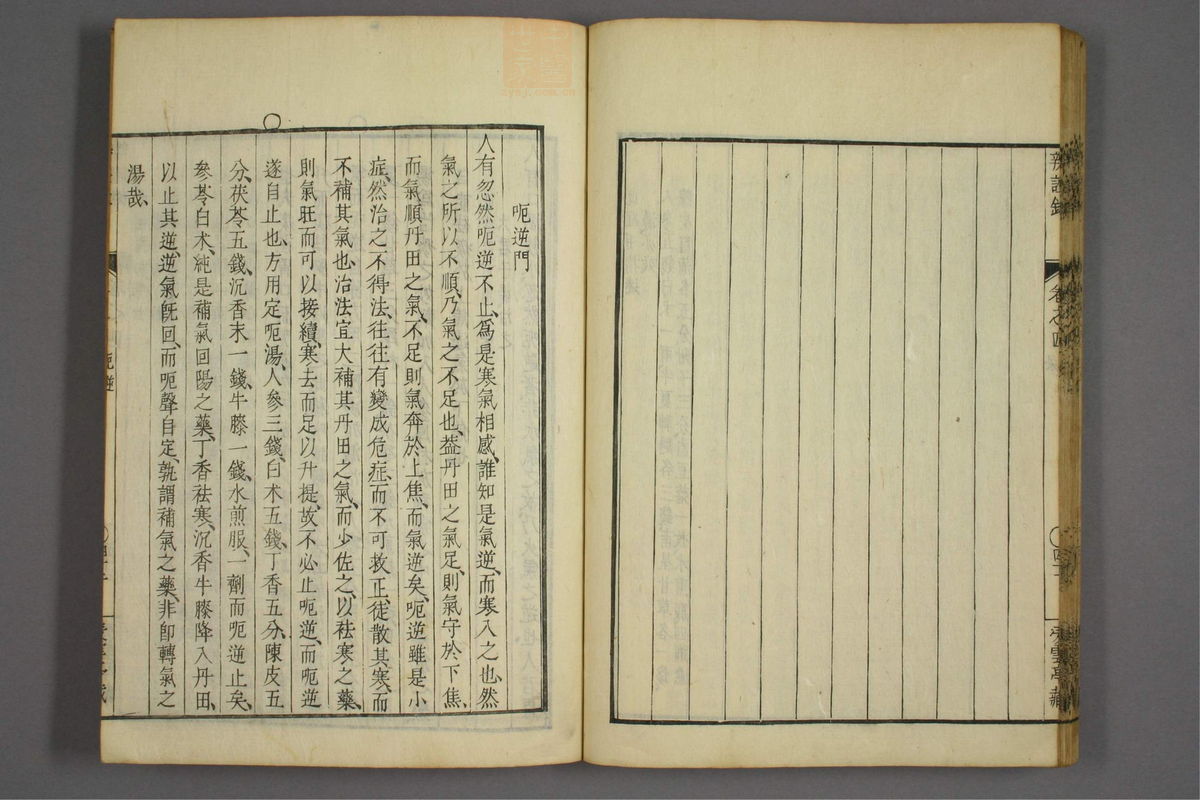 辨證錄
卷之四
呃逆門
人有忽然呃逆不止、爲是寒氣相感、誰知是氣逆、而寒入之也、然
氣之所以不順、乃氣之不足也、葢丹田之氣足、則氣守於下焦、
而氣順、丹田之氣、不足則氣奔於上焦、而氣逆矣、呃逆雖是小
症、然治之不得法、往往有變成危症、而不可救正、徒散其寒、而
不補其氣也、治法宜大補其丹田之氣、而少佐之、以祛寒之藥、
則氣旺而可以接續、寒去而足以升提、故不必止呃逆、而呃逆
遂自止也、方用定呃湯、人參三錢、白术五錢、丁香五分、陳皮五
分、茯苓五錢、沉香末一錢、牛膝一錢、水煎服、一劑而呃逆止矣、
參苓白术、純是補氣回陽之藥、丁香祛寒、沉香牛膝降入丹田、
以止其逆、逆氣旣回、而呃聲自定、孰謂補氣之藥、非卽轉氣之
湯哉、
呃逆